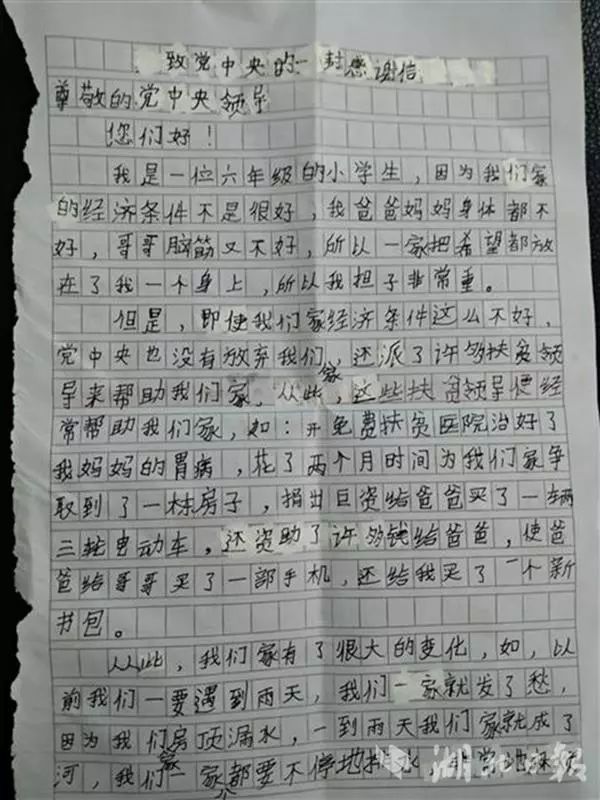 致党中央的一封感谢信
尊敬的党中央领导
您们好！
我是一位六年级的小学生，因为我们家
的经济条件不是很好，我爸爸妈妈身体都不
好，哥哥脑筋又不好，所以一家把希望都放
在了我一个身上，所以我担子非常重。
但是，即使我们家经济条件这么不好，
党中央也没有放弃我们家，还派了许多扶贫领
导来帮助我们家，从此，这些扶贫领导便经
常帮助我们家，如：开免费扶贫医院治好了
我妈妈的胃病，花了两个月时间为我们家争
取到了一栋房子，捐出巨资给爸爸买了一辆
三轮电动车，还资助了许多钱给爸爸，使爸
爸给哥哥买了一部手机，还给我买了一个新
书包。
从此，我们家有了很大的变化，如，以
前我们一要遇到雨天，我们一家就发了愁，
因为我们家房顶漏水，一到雨天我们家就成了
河，我们一家个都要不停地排水，非常地
湖北日报